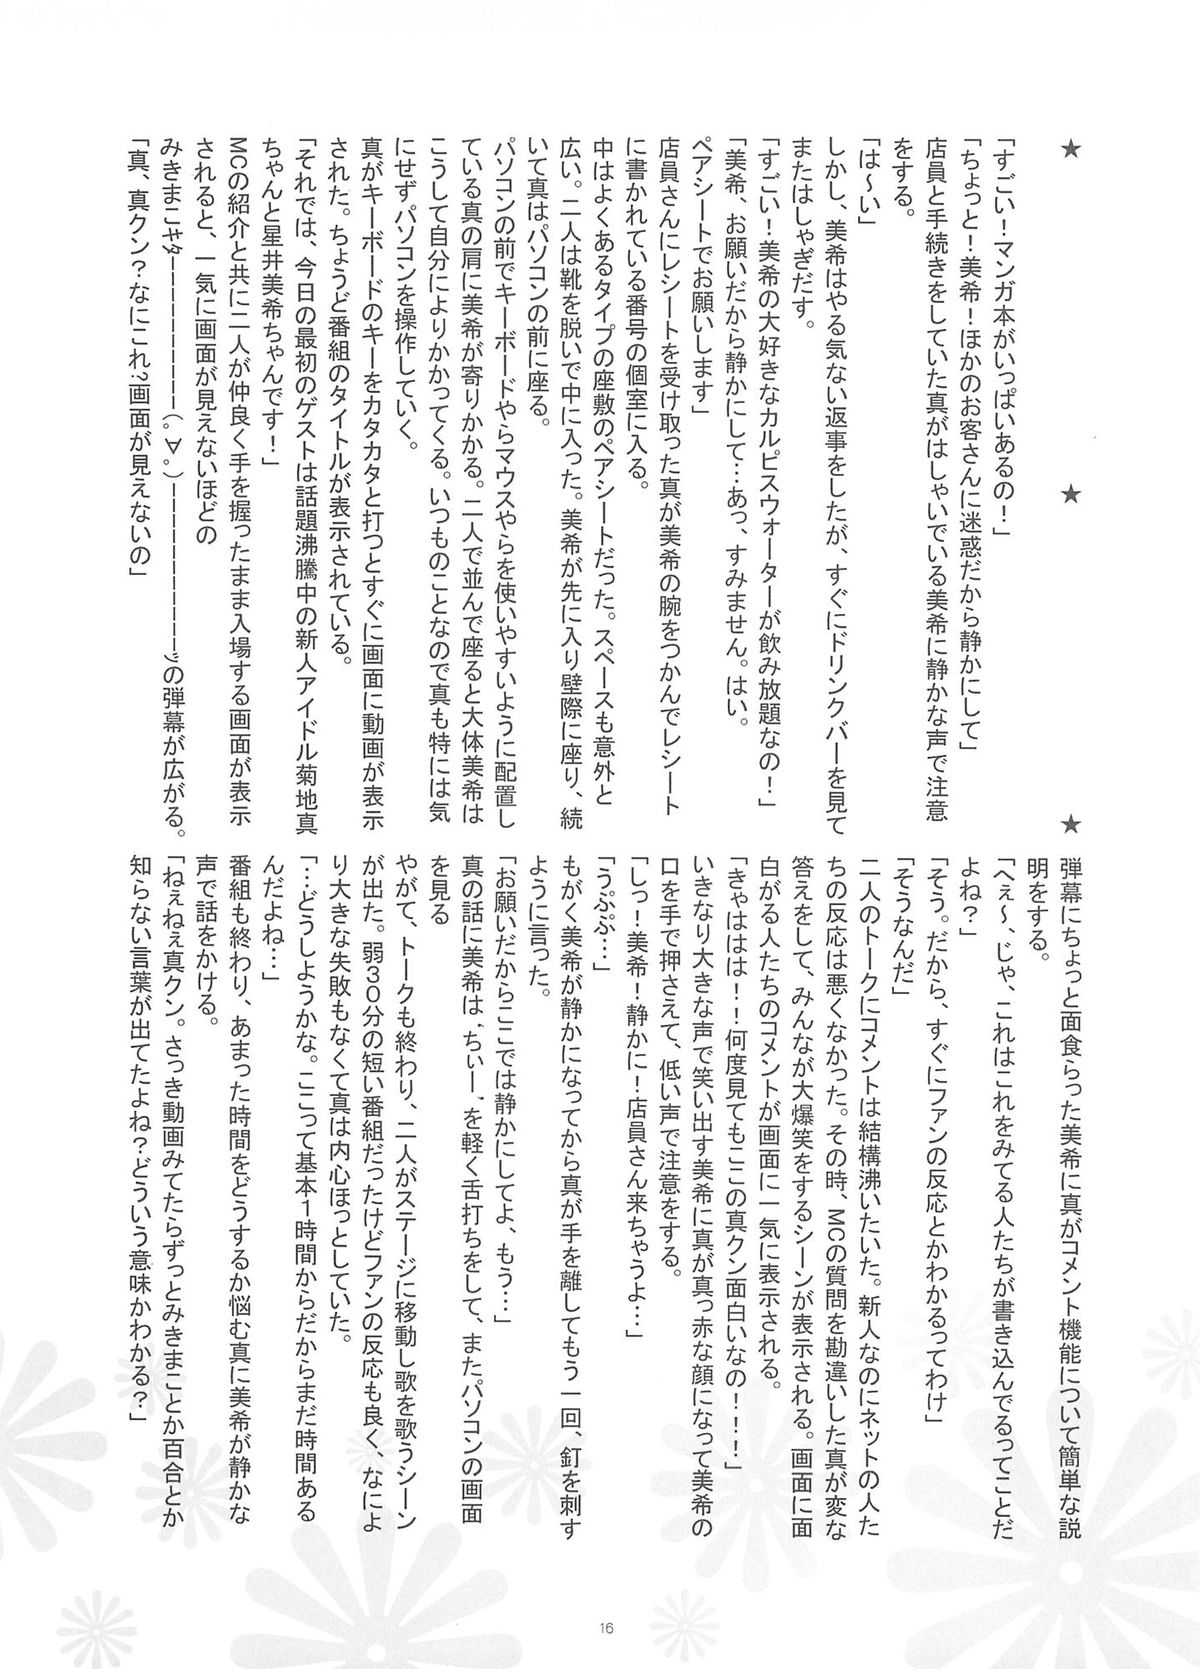 ★　★　★
「すごい！マンガ本がいっぱいあるの！」
「ちょっと！美希！ほかのお客さんに迷惑だから静かにして」
店員と手続きをしていた真がはしゃいでいる美希に静かな声で注意
をする。
「は～い」
しかし、美希はやる気ない返事をしたが、すぐにドリンクバーを見て
またはしゃぎだす。
「すごい！美希の大好きなカルピスウォーターが飲み放題なの！」
「美希、お願いだから静かにして…あっ、すみません。はい。
ペアシートでお願いします」
店員さんにレシートを受け取った真が美希の腕をつかんでレシート
に書かれている番号の個室に入る。
中はよくあるタイプの座敷のペアシートだった。スペースも意外と
広い。二人は靴を脱いで中に入った。美希が先に入り壁際に座り、続
いて真はパソコンの前に座る。
パソコンの前でキーボードやらマウスやらを使いやすいように配置し
ている真の肩に美希が寄りかかる。二人で並んで座ると大体美希は
こうして自分によりかかってくる。いつものことなので真も特には気
にせずパソコンを操作していく。
真がキーボードのキーをカタカタと打つとすぐに画面に動画が表示
された。ちょうど番組のタイトルが表示されている。
「それでは、今日の最初のゲストは話題沸騰中の新人アイドル菊地真
ちゃんと星井美希ちゃんです！」
MCの紹介と共に二人が仲良く手を握ったまま入場する画面が表示
されると、一気に画面が見えないほどの
みきまこｷﾀ━━━━━━━━(ﾟ∀ﾟ)━━━━━━━━!!の弾幕が広がる。
「真、真クン？なにこれ?画面が見えないの」
弾幕にちょっと面食らった美希に真がコメント機能について簡単な説
明をする。
「へぇ～、じゃ、これはこれをみてる人たちが書き込んでるってことだ
よね？」
「そう。だから、すぐにファンの反応とかわかるってわけ」
「そうなんだ」
二人のトークにコメントは結構沸いたいた。新人なのにネットの人た
ちの反応は悪くなかった。その時、MCの質問を勘違いした真が変な
答えをして、みんなが大爆笑をするシーンが表示される。画面に面
白がる人たちのコメントが画面に一気に表示される。
「きゃははは！！何度見てもここの真クン面白いなの！！！」
いきなり大きな声で笑い出す美希に真が真っ赤な顔になって美希の
口を手で押さえて、低い声で注意をする。
「しっ！美希！静かに！店員さん来ちゃうよ…」
「うぷぷ…」
もがく美希が静かになってから真が手を離してもう一回、釘を刺す
ように言った。
「お願いだからここでは静かにしてよ、もう…」
真の話に美希は、”ちぃー”、を軽く舌打ちをして、またパソコンの画面
を見る
やがて、トークも終わり、二人がステージに移動し歌を歌うシーン
が出た。弱30分の短い番組だったけどファンの反応も良く、なによ
り大きな失敗もなくて真は内心ほっとしていた。
「…どうしようかな。ここって基本1時間からだからまだ時間ある
んだよね…」
番組も終わり、あまった時間をどうするか悩む真に美希が静かな
声で話をかける。
「ねぇねぇ真クン。さっき動画みてたらずっとみきまことか百合とか
知らない言葉が出てたよね？どういう意味かわかる？」
16